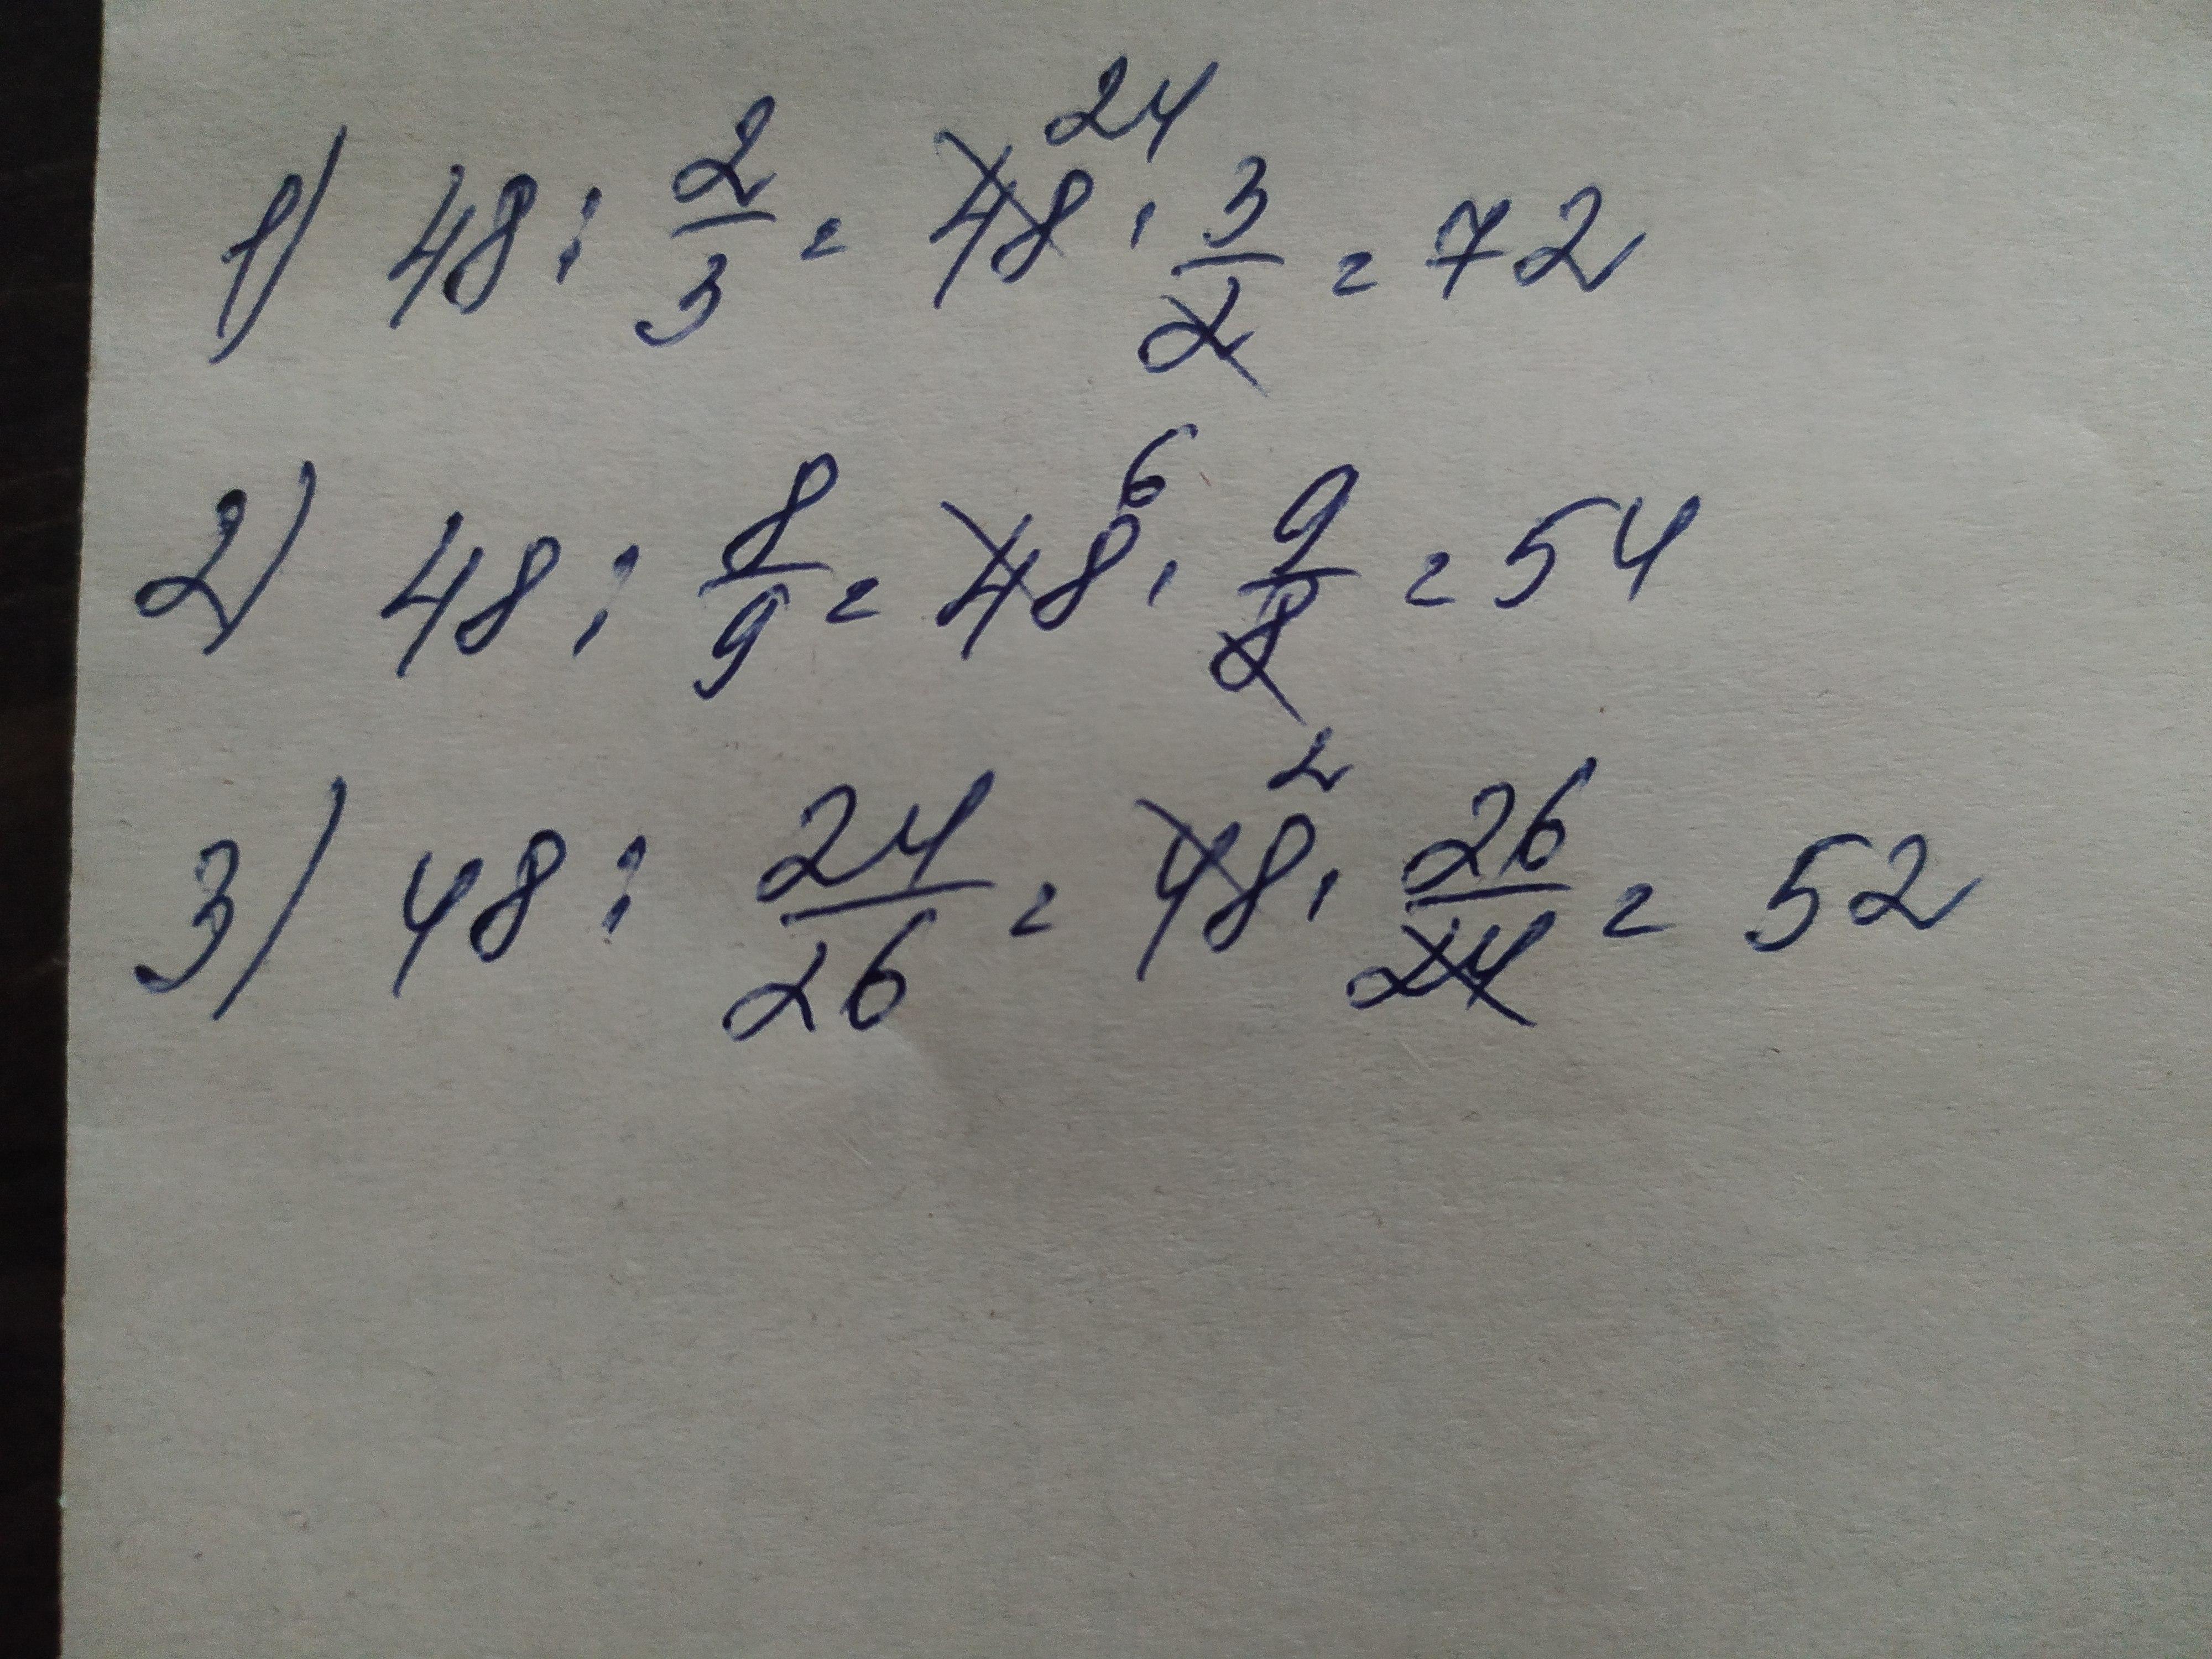 1) 48 : 2/3 = 48 24 · 3/2 = 72
2) 48 : 8/9 = 48 6 · 9/8 = 54
3) 48 : 24/26 = 48 2 · 26/24 = 52